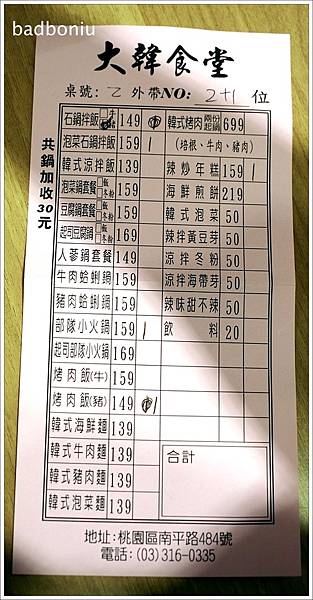 badboniu
大韓食堂
桌號: 乙 外帶NO: 2+1 位
共鍋加收30元
石鍋拌飯 牛 豬 149
泡菜石鍋拌飯 159 /
韓式涼拌飯 139
泡菜鍋套餐 飯 冬粉 159
豆腐鍋套餐 飯 冬粉 159
起司豆腐鍋 飯 冬粉 169
人蔘鍋套餐 149
牛肉蛤蜊鍋 159
豬肉蛤蜊鍋 159
部隊小火鍋 159 /
起司部隊小火鍋 169
烤肉飯(牛) 159
烤肉飯(豬) 149
韓式海鮮麵 139
韓式牛肉麵 139
韓式豬肉麵 139
韓式泡菜麵 139
韓式烤肉 兩份起鍋 699
(培根、牛肉、豬肉)
辣炒年糕 159 /
海鮮煎餅 219
韓式泡菜 50
辣拌黃豆芽 50
涼拌冬粉 50
涼拌海帶芽 50
辣味甜不辣 50
飲料 20
合計
地址:桃園區南平路484號
電話:(03)316-0335